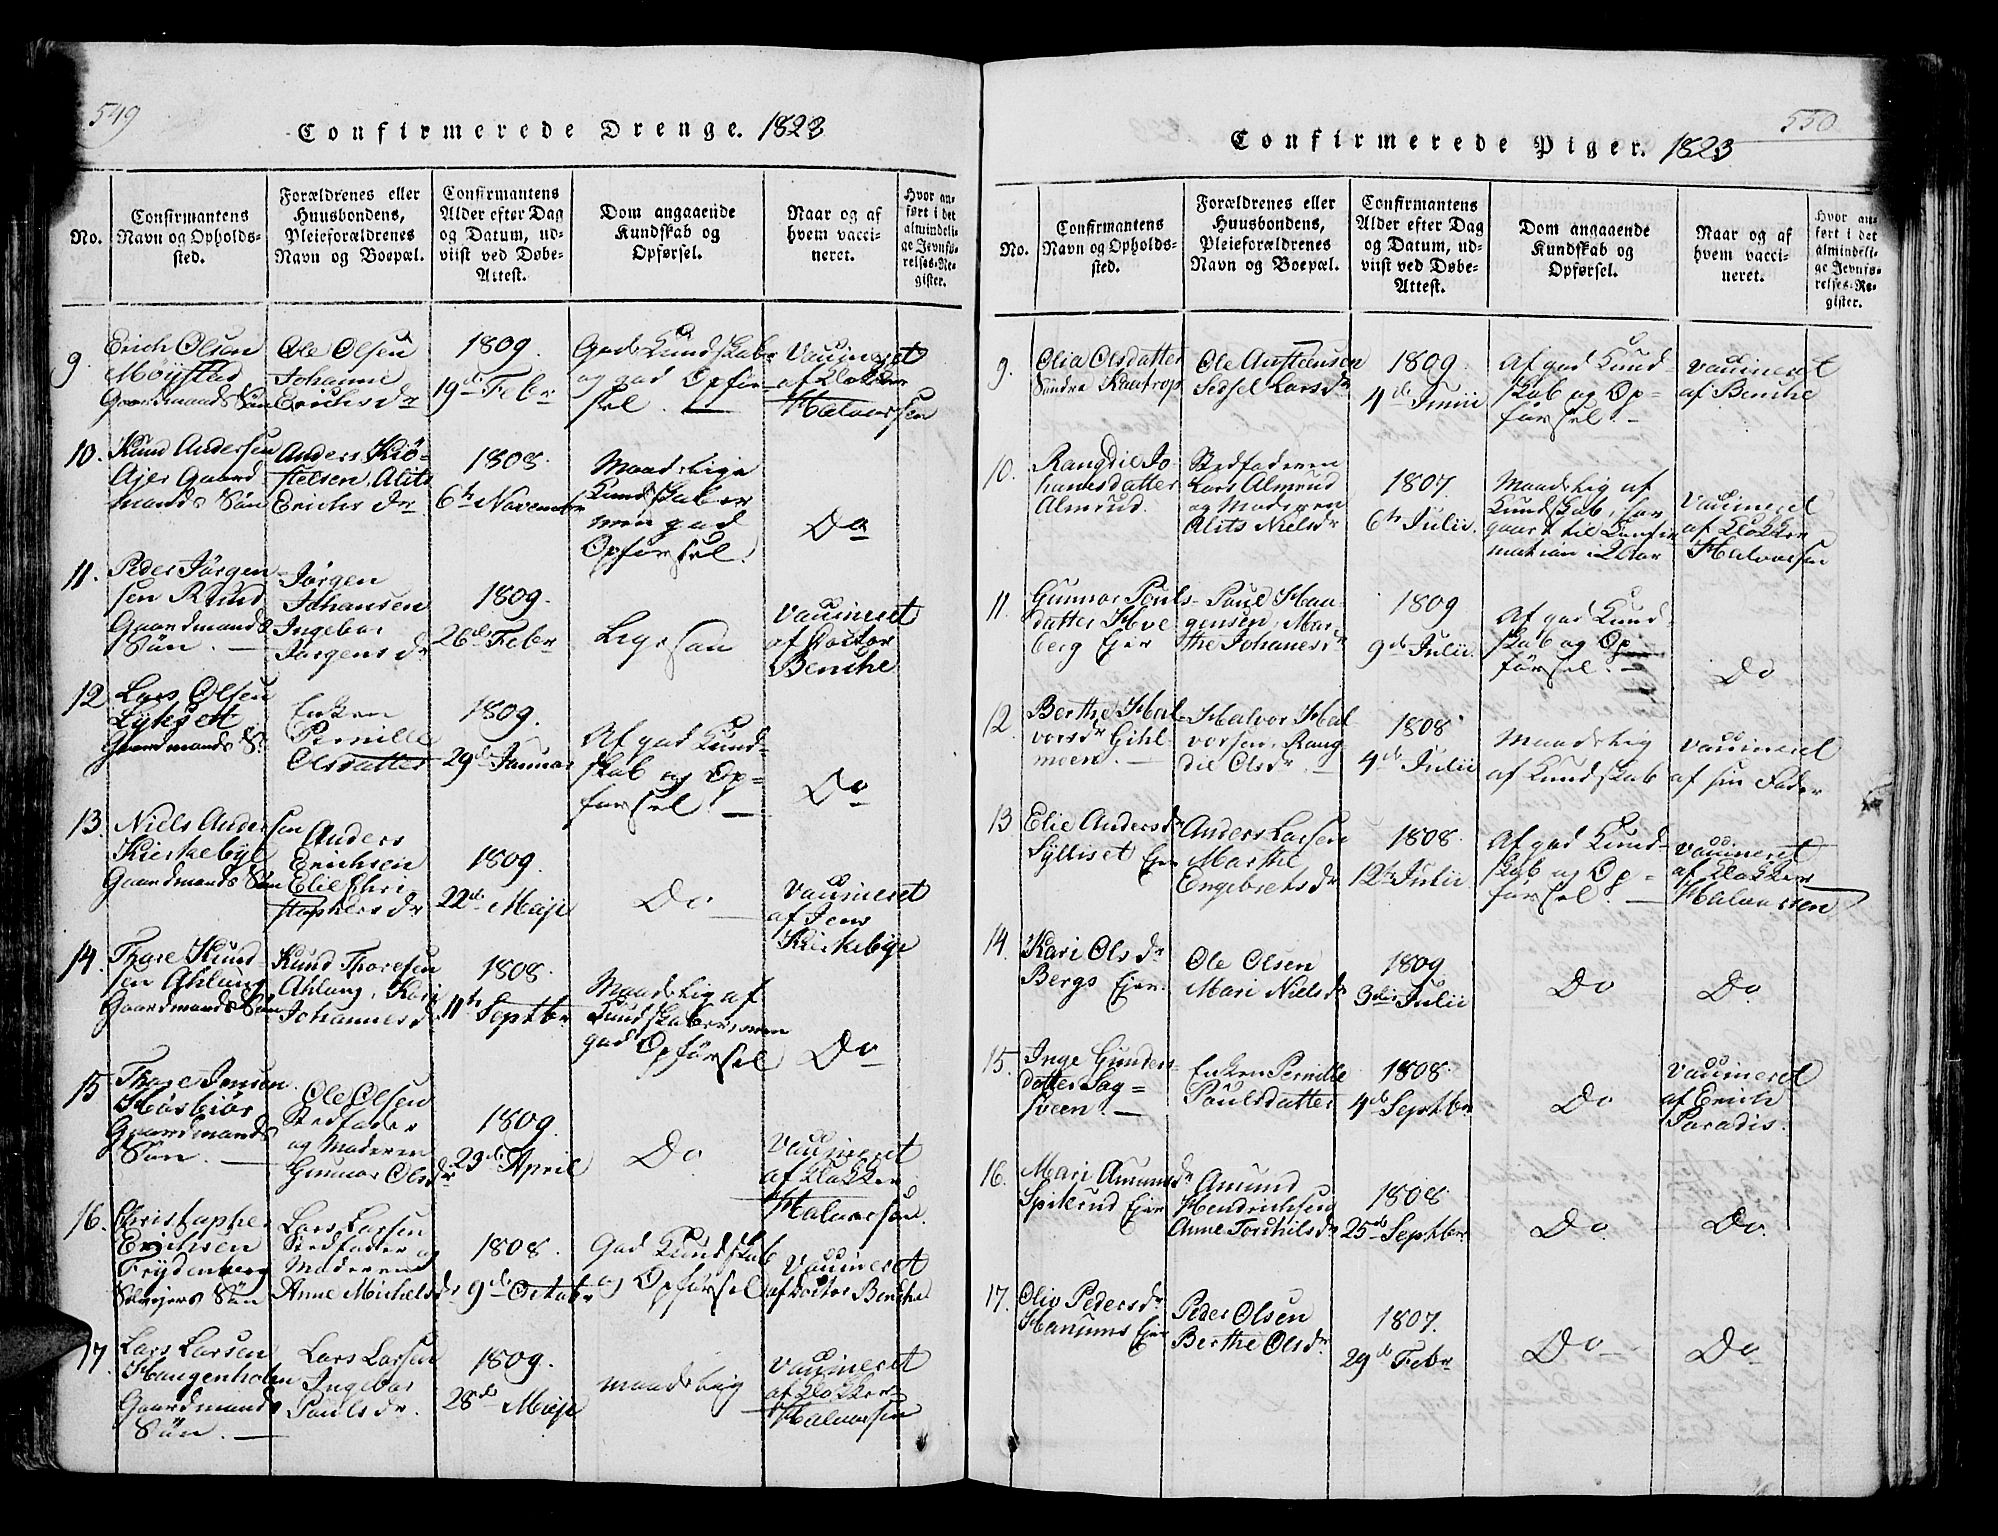 549
Confirmerede Drenge. 1823
No.
Confirmantens
Navn og Opholds-
sted.
Forældrenes eller
Huusbondens,
Pleieforældrenes
Navn og Boepæl.
Confirmantens
Alder efter Dag
og Datum, ud-
viist ved Døbe-
Attest.
Dom angaaende
Kundskab og
Opførsel.
Naar og af
hvem vacci-
neret.
Hvor an-
ført i det
almindeli-
ge Jevnfø-
relses-Re-
gister.
9.
Erich Olsen
Möystad
Gaardmands Sön
Ole Olsen
Johanne
Erichsdr
1809.
19de Febr
God Kundskab
og god Opför-
sel.
Vaccineret
af Klokker
Halvorsen
10.
Knud Andersen
Ajer Gaard
mands Sön
Anders Kiö-
stelsen, Alits
Erichsdr
1808.
6te November
Maadelige
Kundskaber
men god
Opförsel.
Do
11.
Peder Jörgen
sen Rund
Gaardmands
Sön.
Jörgen
Johansen
Ingebor
Jörgensdr
1809.
26de Febr
Ligesaa
Vaccineret
af Doctor
Benche
12
Lars Olsen
Lykset
Gaardmands S.
Enken
Pernille
Olsdatter
1809.
29de Januar
Af god Kund-
skab og Op-
försel.
Do
13.
Niels Andersen
Kirkebye
Gaardmands Sön
Anders
Erichsen
Elie Chri
stophersdr
1809.
22de Maje
Do
Vaccineret
af Jens
Kirkebye
14.
Thore Knud
sen Ahlung
Gaardmands Sön
Knud Thoresen
Ahlung, Kari
Johannesdr
1808.
11te Septbr
Maadelig af
Kundskaber, men
god Opförsel
Do
15
Thore Jensen
Hösbiör
Gaardmands
Sön.
Ole Olsen
Stedfader
og Moderen
Gunnor Olsdr
1809.
23de April
Do
Vaccineret
af Klokker
Halvorsen.
16.
Christopher
Erichsen
Frydenberg
Selvejers Sön
Lars Larsen
Stedfader og
Moderen
Anne Michelsdr
1808.
9de Octobr
God Kundskab
og Opförsel
Vaccineret
af Doctor Benche
17
Lars Larsen
Haugenholm
Gaardmands
Sön.
Lars Larsen
Ingebor
Poulsdr.
1809.
28de Maje
maadelig
Vaccineret
af Klokker
Halvorsen
550
Confirmerede Piger. 1823
No.
Confirmantens
Navn og Opholds-
sted.
Forældrenes eller
Huusbondens,
Pleieforældrenes
Navn og Boepæl.
Confirmantens
Alder efter Dag
og Datum, ud-
viist ved Døbe-
Attest.
Dom angaaende
Kundskab og
Opførsel.
Naar og af
hvem vacci-
neret.
Hvor an-
ført i det
almindeli-
ge Jevnfø-
relses-Re-
gister.
9.
Olia Olsdatter
Söndre
Ole Austensen
Sidsel Larsdr
1809.
4de Junii
Af god Kund-
skab og Op-
försel.
Vaccineret
af Benche
10.
Rangdil Jo-
hannesdatter
Almrud.
Stedfaderen
Lars Almrud
og Moderen
Alits Nielsdr
1807.
6te Julii.
Maadelig af
Kundskab, for
gaart til Confir
mation i 2 Aar
Vaccineret
af Klokker
Halvorsen
11.
Gunnor Pouls-
datter Hve
berg Ejer
Poul Haa-
gensen, Mar-
the Johanesdr
1809
9de Julii.
Af god Kund-
skab og Op-
försel.
Do
12.
Berthe Hal-
vorsdr Gihl-
moen.
Halvor Hal
vorsen, Rang-
dil Olsdr.
1808
4de Julii
Maadelig
af Kundskab
Vaccineret
af sin Fader
13
Elie Andersdr
Sylliset Ejer
Anders Larsen
Marthe
Engebretsdr
1808.
12te Julii
Af god Kund-
skab og Op-
försel.
Vaccineret
af Klokker
Halvorsen
14.
Kari Olsdr
Bergs Ejer.
Ole Olsen
Mari Nielsdr
1809
3die Julii
Do
Do.
15.
Inge Gunders-
datter Sag-
sveen.
Enken Pernille
Poulsdatter
1808.
4de Septbr
Do
Vaccineret
af Erich
Paradis.
16.
Mari Amundsdr
Spikrud Ejer
Amund
Hendrichsen
Anne Torchilsdr
1808.
25de Septbr
Do.
Do.
17.
Oliv Pedersdr
Hanjums Ejer
Peder Olsen
Berthe Olsdr
1807.
29de Febr
Do
Do